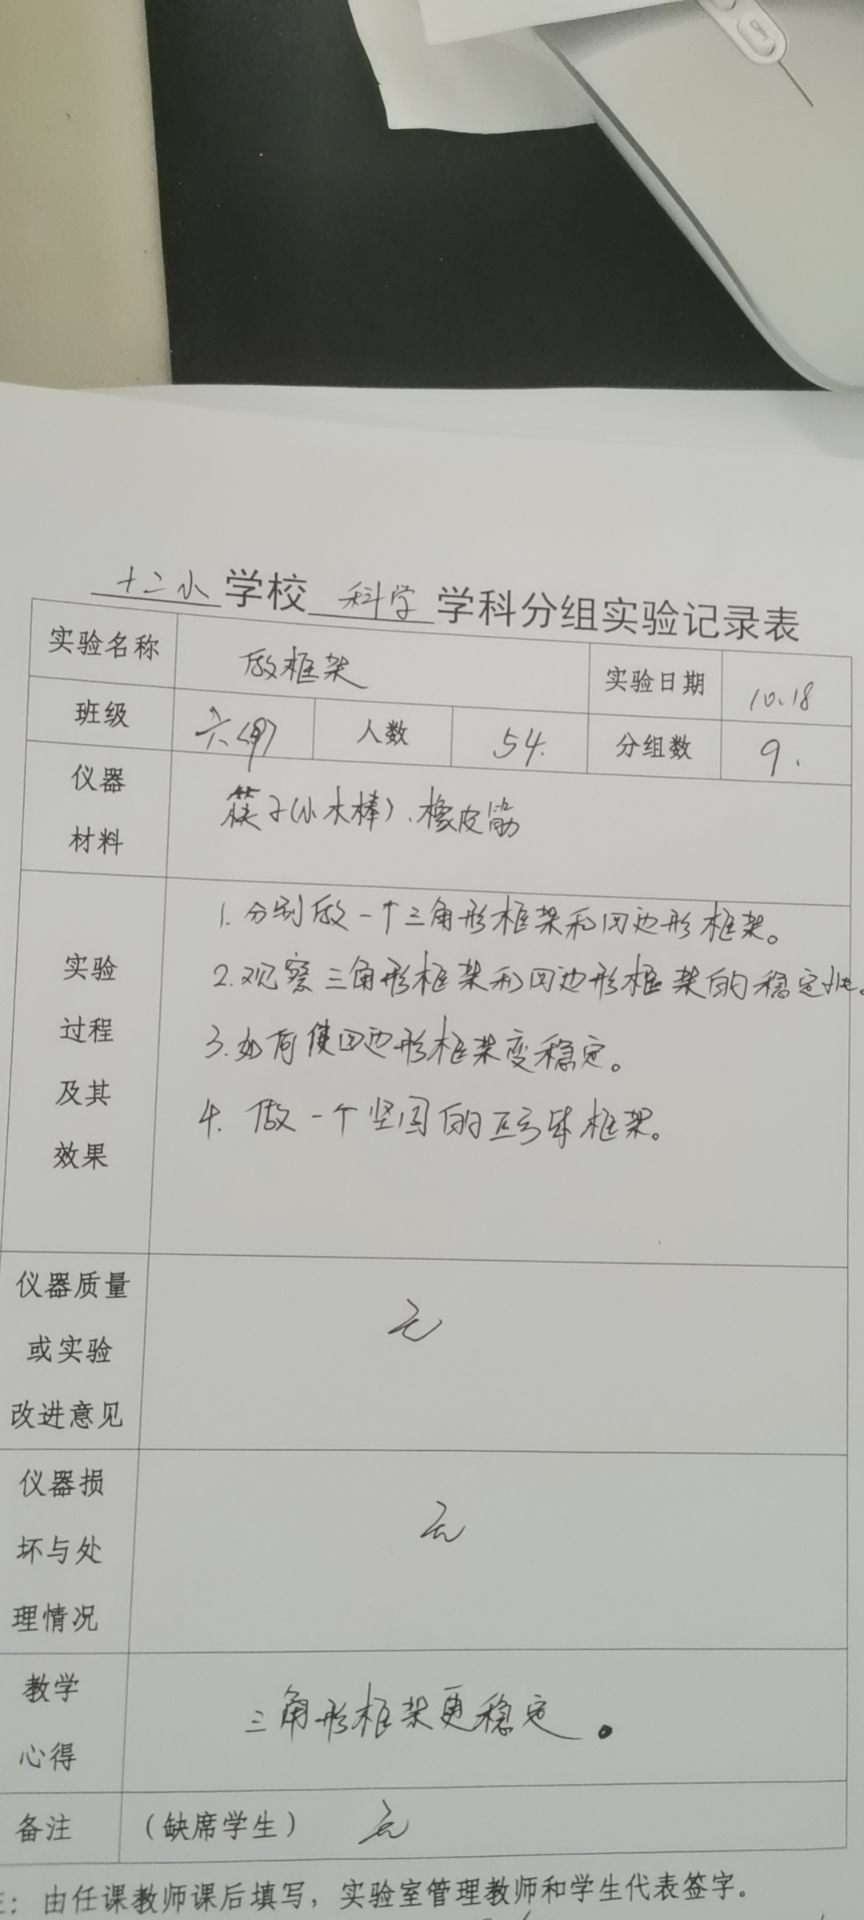 十二小学校科学学科分组实验记录表
实验名称 做框架 实验日期 10.18
班级 六 人数 54. 分组数 9.
仪器
材料
筷子(小木棒)、橡皮筋
实验
过程
及其
效果
1.分别做一个三角形框架和四边形框架。
2.观察三角形框架和四边形框架的稳定性。
3.如何使四边形框架变稳定。
4.做一个坚固的正方体框架。
仪器质量
或实验
改进意见
无
仪器损
坏与处
理情况
无
教学
心得
三角形框架更稳定。
备注 (缺席学生) 无
:由任课教师课后填写,实验室管理教师和学生代表签字。